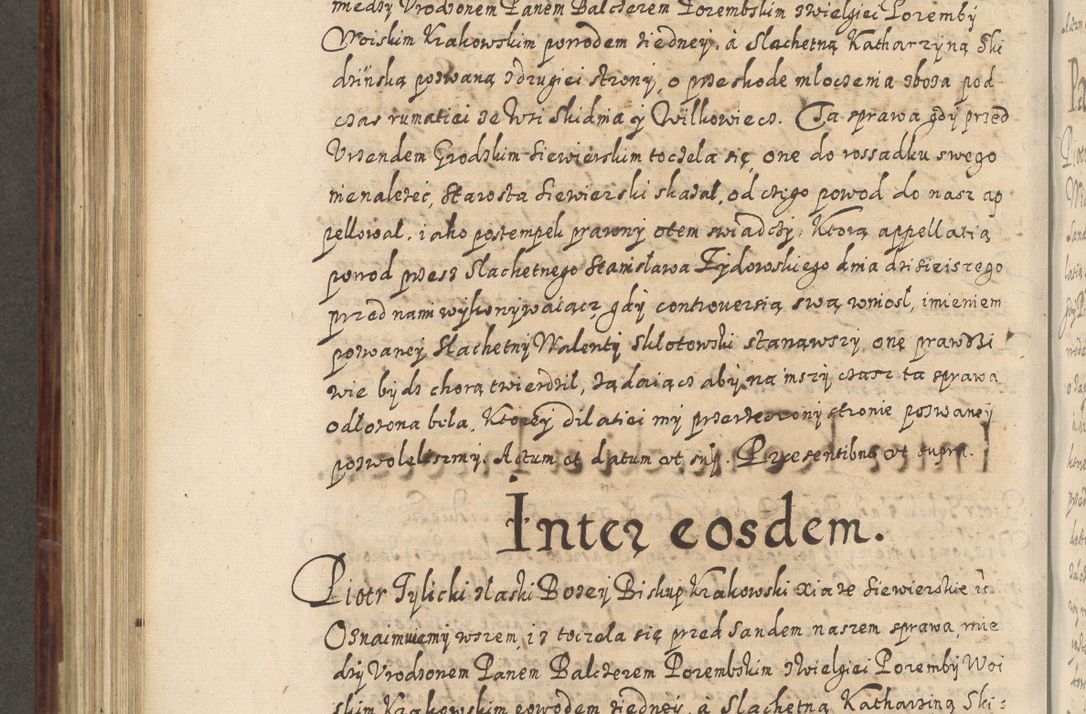 miedzy Vrodzonem Panem Balczerem Porembskim zwielgiei Poremby
Woiskim Krakowskim powodem ziedney, à Slachetną Katharzyną Ski
dzińską pozwaną zdrugiei strony, o przeskode mloczenia zboza pod
czas rumatiei ze Wsi Skidnia y Wilkowiecz. Ta sprawa gdy przed
Vrzendem Grodzkim Siewierskim toczela się, one do rossadku swego
nienalezec, Starosta Siewierski skazal, od czego powod do nasz ap
pellowal, iako postempek prawny otem swiadczy. Ktorą appellatią
powod przesz Slachetnego Stanisława Fydowskiego dnia dzisieiszego
przed nami wykonywaiącz, gdy controuersią swą wniosl, imieniem
pozwaney Slachetny Walenty Sklotowski stanąwszy, one prawdzi
wie bydz chorą twierdzil, ządaiącz aby na inszy czasz ta sprawa
odlozona bila. Ktorey dilatiei my przerzeczony stronie pozwaney
pozwolelismy. Actum et datum vt sup. Præsentibus vt supra.
Inter eosdem.
Piotr Tylicki zlaski Bozey Biskup Krakowski Xiaze Siewierskie
Oznaimuiemy wszem, iz toczela się przed Sandem naszem sprawa, mie
dzy Vrodzonem Panem Balczerem Porembskim zwielgiei Poremby Woi
skim Krakowskim powodem ziedney, à Slachetną Katharziną Ski: